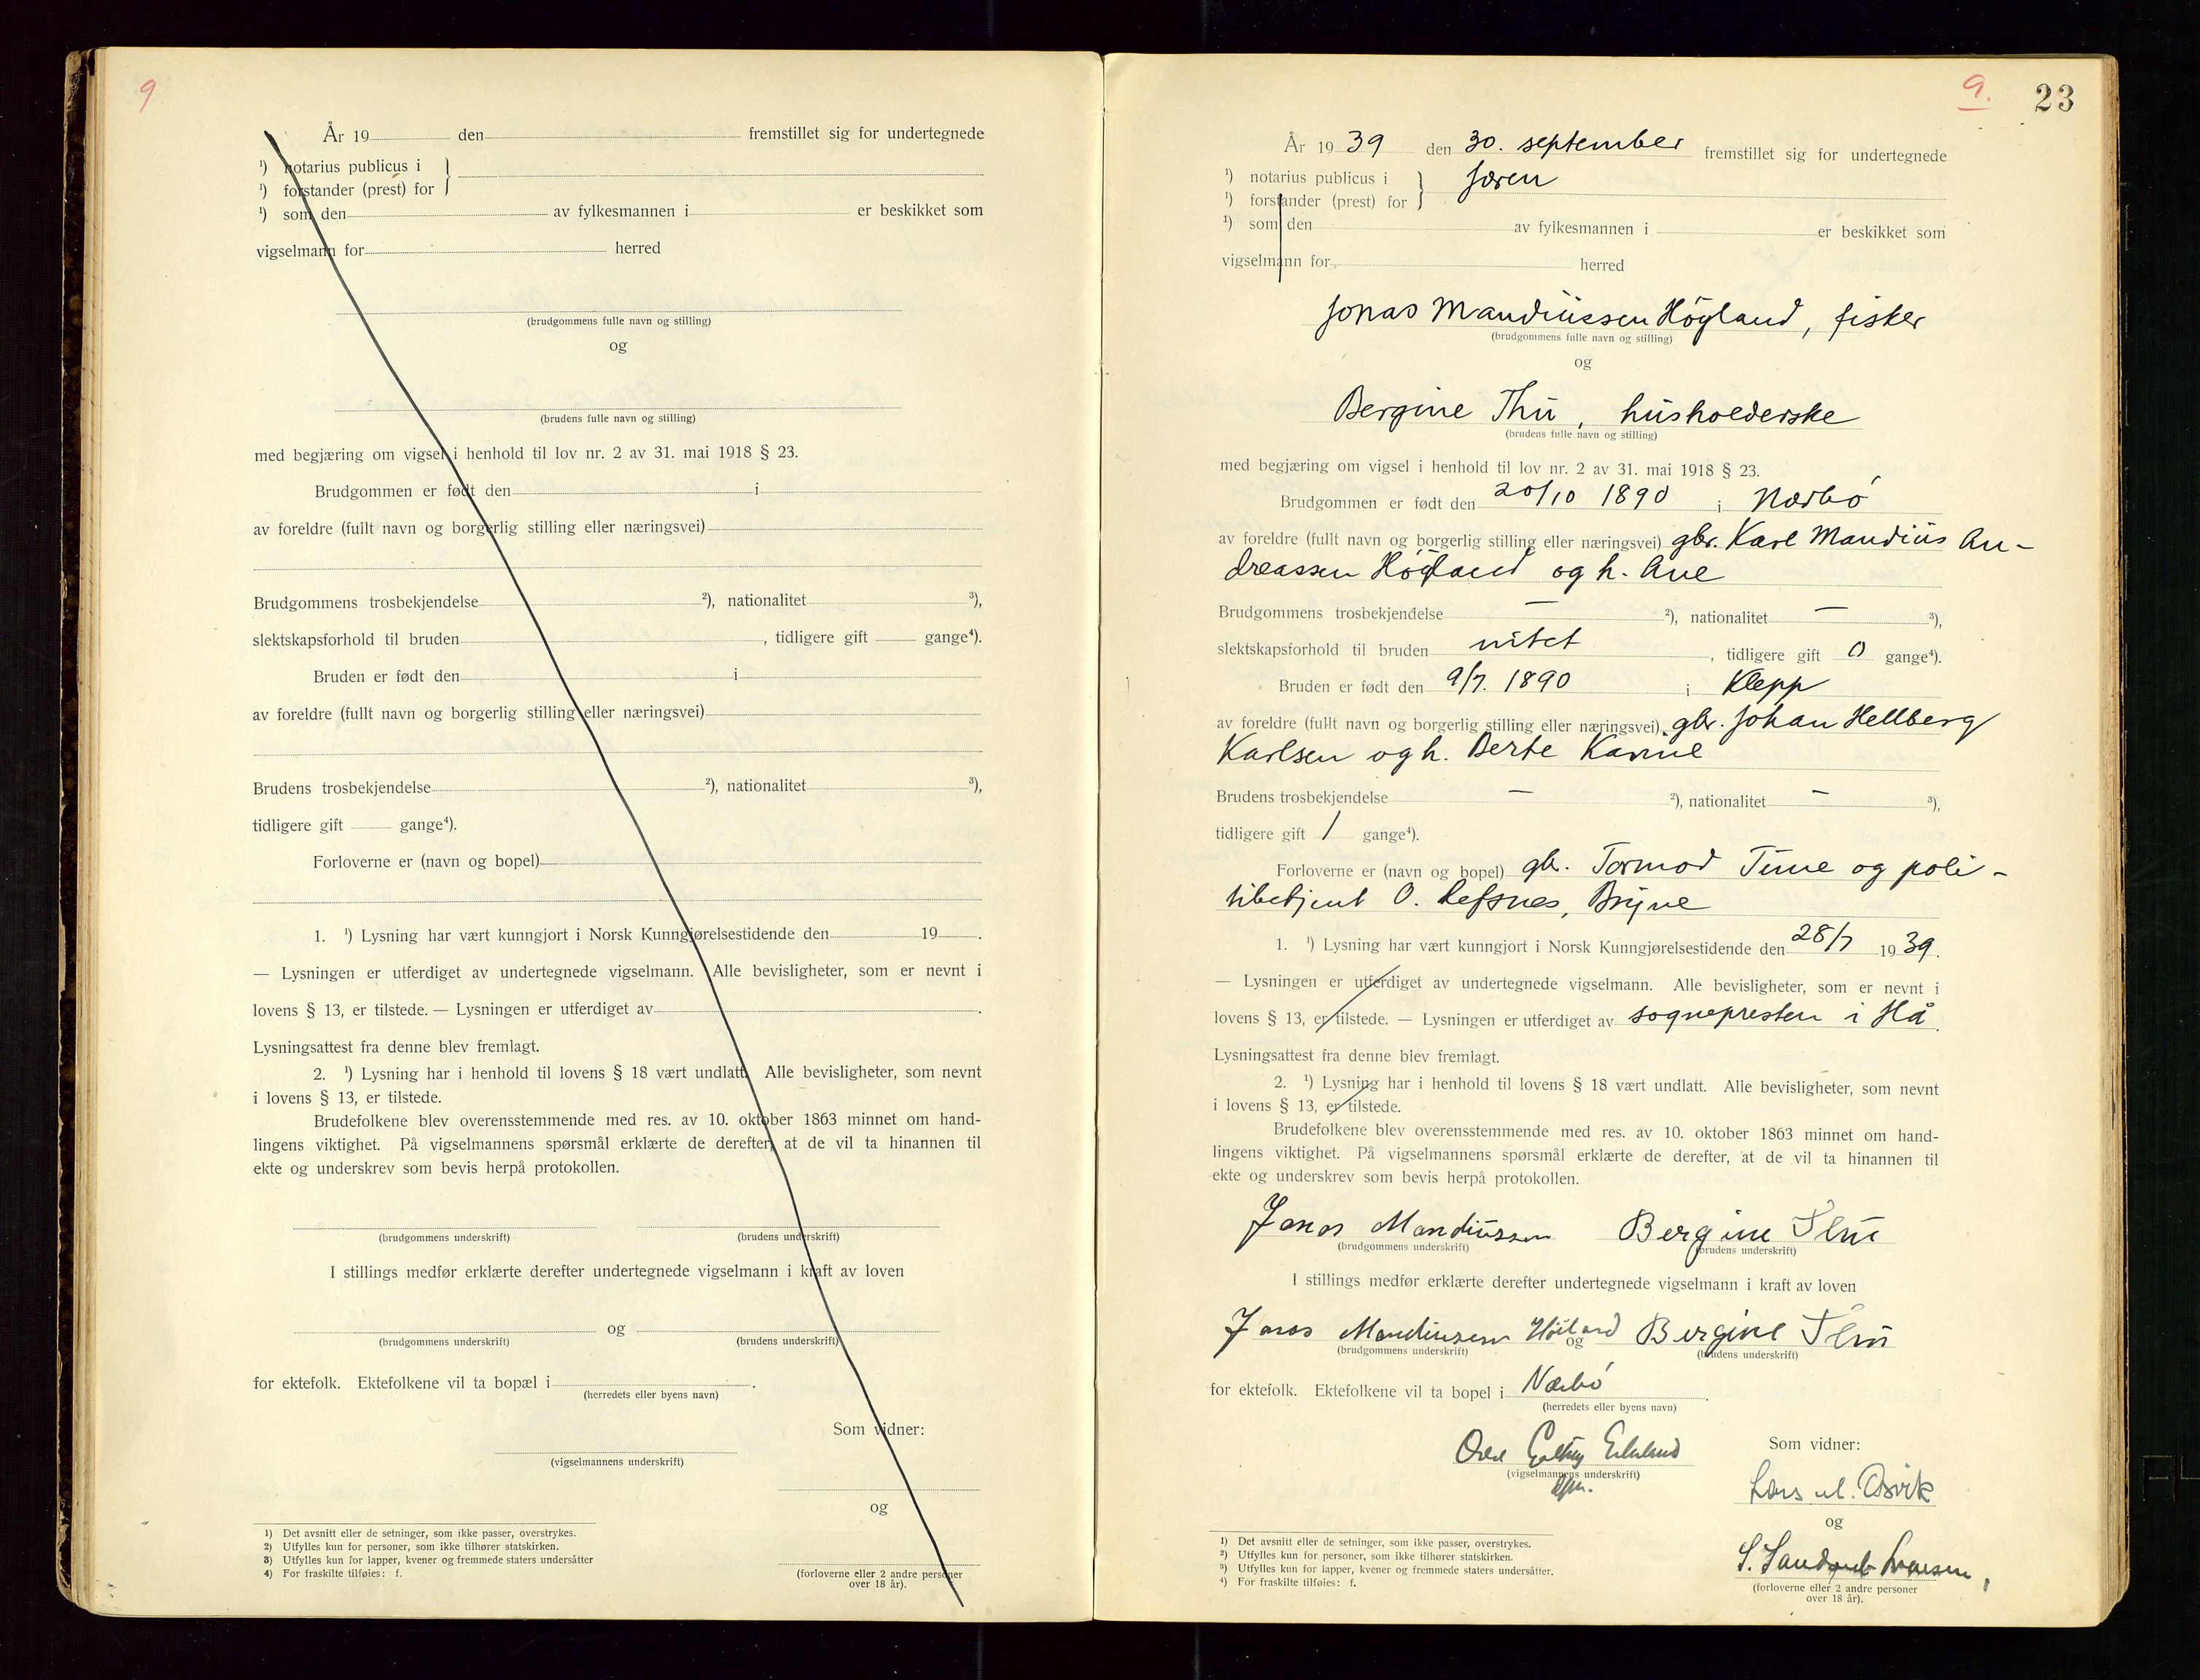 9
År 19 den fremstillet sig for undertegnede
¹) notarius publicus i }
¹) forstander (prest) for
¹) som den av fylkesmannen i er beskikket som
vigselmann for herred
(brudgommens fulle navn og stilling)
og
(brudens fulle navn og stilling)
med begjæring om vigsel i henhold til lov nr. 2 av 31. mai 1918 § 23.
Brudgommen er født den i
av foreldre (fullt navn og borgerlig stilling eller næringsvei)
Brudgommens trosbekjendelse ²), nationalitet ³),
slektskapsforhold til bruden , tidligere gift gange⁴).
Bruden er født den i
av foreldre (fullt navn og borgerlig stilling eller næringsvei)
Brudens trosbekjendelse ²), nationalitet ³),
tidligere gift gange⁴).
Forloverne er (navn og bopel)
1. ¹) Lysning har vært kunngjort i Norsk Kunngjørelsestidende den 19 .
— Lysningen er utferdiget av undertegnede vigselmann. Alle bevisligheter, som er nevnt i
lovens § 13, er tilstede. — Lysningen er utferdiget av .
Lysningsattest fra denne blev fremlagt.
2. ¹) Lysning har i henhold til lovens § 18 vært undlatt. Alle bevisligheter, som nevnt
i lovens § 13, er tilstede.
Brudefolkene blev overensstemmende med res. av 10. oktober 1863 minnet om hand-
lingens viktighet. På vigselmannens spørsmål erklærte de derefter, at de vil ta hinannen til
ekte og underskrev som bevis herpå protokollen.
(brudgommens underskrift) (brudens underskrift)
I stillings medfør erklærte derefter undertegnede vigselmann i kraft av loven
og
(brudgommens underskrift) (brudens underskrift)
for ektefolk. Ektefolkene vil ta bopæl i .
(herredets eller byens navn)
Som vidner:
(vigselmannens underskrift)
og
(forloverne eller 2 andre personer
over 18 år).
1) Det avsnitt eller de setninger, som ikke passer, overstrykes.
2) Utfylles kun for personer, som ikke tilhører statskirken.
3) Utfylles kun for lapper, kvener og fremmede staters undersåtter
4) For fraskilte tilføies: f.
9. 23
År 19 39 den 30. september fremstillet sig for undertegnede
¹) notarius publicus i } Jæren
¹) forstander (prest) for
¹) som den av fylkesmannen i er beskikket som
vigselmann for herred
Jonas Mandiussen Høyland, fisker
(brudgommens fulle navn og stilling)
og
Bergine Thu, husholderske
(brudens fulle navn og stilling)
med begjæring om vigsel i henhold til lov nr. 2 av 31. mai 1918 § 23.
Brudgommen er født den 20/10 1890 i Nærbø
av foreldre (fullt navn og borgerlig stilling eller næringsvei) gbr. Karl Mandius An-
dreassen Høyland og h. Ane
Brudgommens trosbekjendelse — ²), nationalitet — ³),
slektskapsforhold til bruden intet , tidligere gift 0 gange⁴).
Bruden er født den 9/7. 1890 i Klepp
av foreldre (fullt navn og borgerlig stilling eller næringsvei) gbr. Johan Hellberg
Karlsen og h. Berte Karine
Brudens trosbekjendelse — ²), nationalitet — ³),
tidligere gift 1 gange⁴).
Forloverne er (navn og bopel) gbr. Tormod Time og poli-
tibetjent O. Refsnes, Bryne
1. ¹) Lysning har vært kunngjort i Norsk Kunngjørelsestidende den 28/7 19 39.
— Lysningen er utferdiget av undertegnede vigselmann. Alle bevisligheter, som er nevnt i
lovens § 13, er tilstede. — Lysningen er utferdiget av sognepresten i Hå.
Lysningsattest fra denne blev fremlagt.
2. ¹) Lysning har i henhold til lovens § 18 vært undlatt. Alle bevisligheter, som nevnt
i lovens § 13, er tilstede.
Brudefolkene blev overensstemmende med res. av 10. oktober 1863 minnet om hand-
lingens viktighet. På vigselmannens spørsmål erklærte de derefter, at de vil ta hinannen til
ekte og underskrev som bevis herpå protokollen.
Jonas Mandiussen Bergine Thu
(brudgommens underskrift) (brudens underskrift)
I stillings medfør erklærte derefter undertegnede vigselmann i kraft av loven
Jonas Mandiussen Høiland og Bergine Thu
(brudgommens underskrift) (brudens underskrift)
for ektefolk. Ektefolkene vil ta bopel i Nærbø .
(herredets eller byens navn)
Som vidner:
(vigselmannens underskrift)
Lars
og
S.
(forloverne eller 2 andre personer
over 18 år).
¹) Det avsnitt eller de setninger, som ikke passer, overstrykes.
²) Utfylles kun for personer, som ikke tilhører statskirken.
³) Utfylles kun for lapper, kvener og fremmede staters undersåtter.
⁴) For fraskilte tilføies: f.